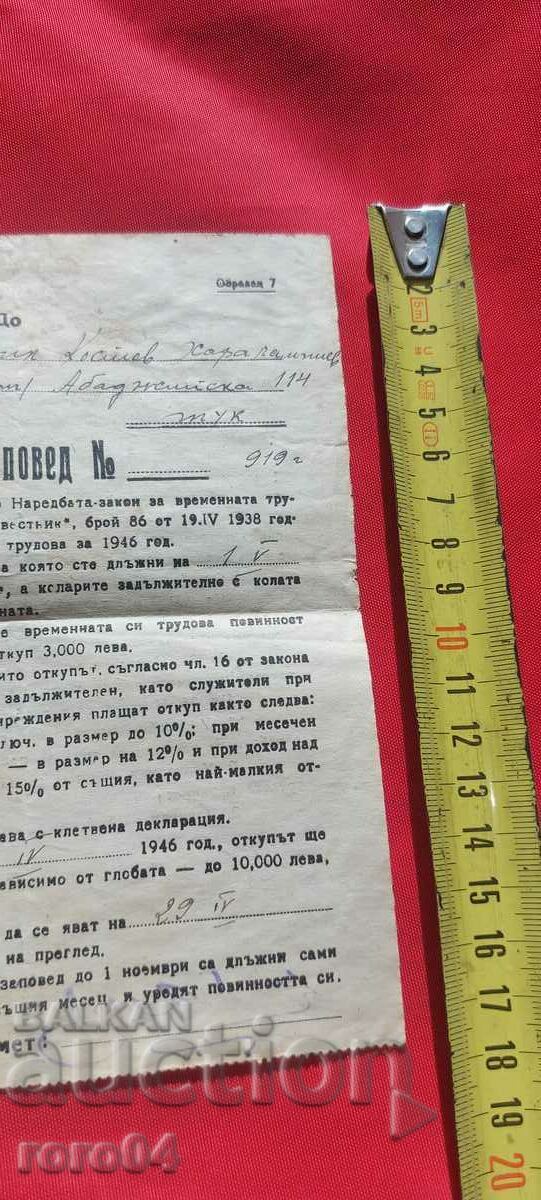 Образец 7
До
Костов Харалампиев
Абаджийска 114
тук
повед № 919 г
Наредбата-закон за временната тру-
вестник", брой 86 от 19.IV 1938 год-
трудова за 1946 год.
а която сте длъжни на 1 V
, а коларите задължително с колата
ната.
е временната си трудова повинност
ткуп 3,000 лева.
ито откупът, съгласно чл. 16 от закона
задължителен, като служители при
реждения плащат откуп както следва:
ключ. в размер до 10%; при месечен
— в размер на 12% и при доход над
15% от същия, като най-малкия от-
ава с клетвена декларация.
IV 1946 год., откупът ще
ависимо от глобата — до 10,000 лева,
да се яват на 29 IV
на преглед.
заповед до 1 ноември са длъжни сами
същия месец и уредят повинността си.
мет:
BALKAN
auction
roro04
2
3
4
5
6
7
8
9
10
11
12
13
14
15
16
17
18
19
20
5m